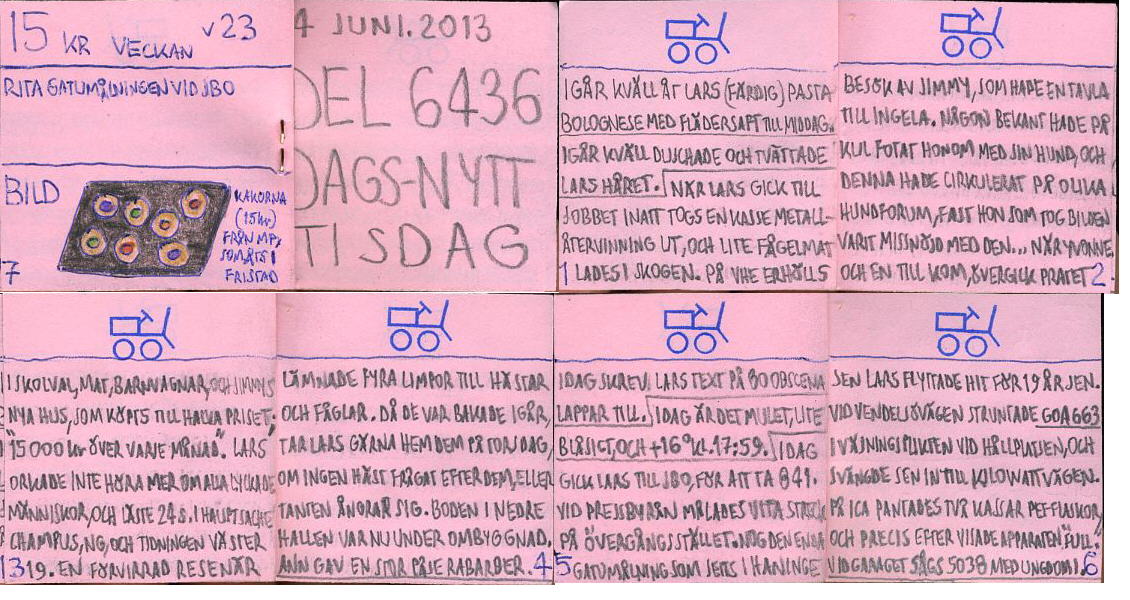 15 KR VECKAN V23
RITA GATUMÅLNINGEN VID JBO
BILD
KAKORNA
(15kr)
FRÅN MP,
SOM ÅTS I
FRISTAD
7
4 JUNI.2013
DEL 6436
DAGS-NYTT
TISDAG
IGÅR KVÄLL ÅT LARS (FÄRDIG) PASTA
BOLOGNESE MED FLÄDERSAFT TILL MIDDAG.
IGÅR KVÄLL DUSCHADE OCH TVÄTTADE
LARS HÅRET. NÄR LARS GICK TILL
JOBBET INATT TOGS EN KASSE METALL-
ÅTERVINNING UT, OCH LITE FÅGELMAT
1 LADES I SKOGEN. PÅ VHE ERHÖLLS
BESÖK AV JIMMY, SOM HADE EN TAVLA
TILL INGELA. NÅGON BEKANT HADE PÅ
KUL FOTAT HONOM MED SIN HUND, OCH
DENNA HADE CIRKULERAT PÅ OLIKA
HUNDFORUM, FAST HON SOM TOG BILDEN
VARIT MISSNÖJD MED DEN... NÄR YVONNE
OCH EN TILL KOM, ÖVERGICK PRATET 2.
I SKOLVAL, MAT, BARNVAGNAR, OCH JIMMYS
NYA HUS, SOM KÖPTS TILL HALVA PRISET.
"15 000 kr ÖVER VARJE MÅNAD". LARS
ORKADE INTE HÖRA MER OM ALLA LYCKADE
MÄNNISKOR, OCH LÄSTE 24 S. I HAUPTSACHE
CHAMPUS, NG, OCH TIDNINGEN VÄSTER
3 19. EN FÖRVIRRAD RESENÄR
LÄMNADE FYRA LIMPOR TILL HÄSTAR
OCH FÅGLAR. DÅ DE VAR BAKADE IGÅR,
TAR LARS GÄRNA HEM DEM PÅ TORSDAG,
OM INGEN HÄST FRÅGAT EFTER DEM, ELLER
TANTEN ÅNGRAR SIG. BODEN I NEDRE
HALLEN VAR NU UNDER OMBYGGNAD.
ANN GAV EN STOR PÅSE RABARBER. 4
IDAG SKREV LARS TEXT PÅ 80 OBSCENA
LAPPAR TILL. IDAG ÄR DET MULET, LITE
BLÅSIGT, OCH +16° kl. 17:59. IDAG
GICK LARS TILL JBO, FÖR ATT TA 841.
VID PRESSBYRÅN MÅLADES VITA STRECK
PÅ ÖVERGÅNGSSTÄLLET. NOG DEN ENDA
5 GATUMÅLNING SOM SETTS I HANINGE
SEN LARS FLYTTADE HIT FÖR 19 ÅR SEN.
VID VENDELSÖVÄGEN STRUNTADE GOA663
I VÄJNINGSPLIKTEN VID HÅLLPLATSEN, OCH
SVÄNGDE SEN IN TILL KILOWATTVÄGEN.
PÅ ICA PANTADES TVÅ KASSAR PET-FLASKOR,
OCH PRECIS EFTER VISADE APPARATEN "FULL".
VID GARAGET SÅGS 5038 MED UNGDOM I. 6